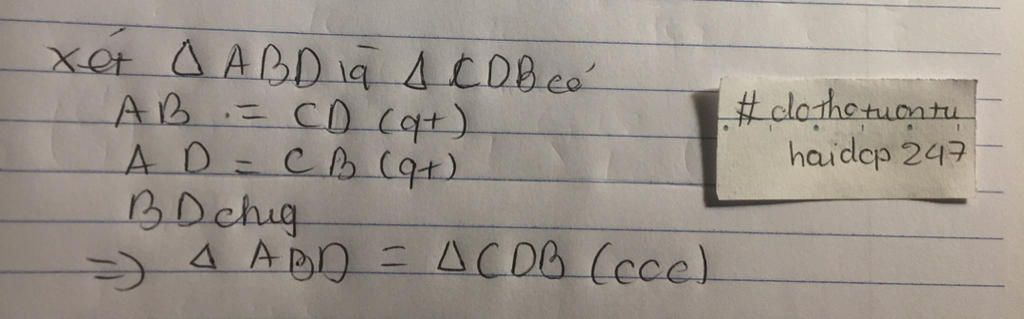 Xét Δ ABD và Δ CDB có
AB = CD (gt)
AD = CB (gt)
BD chug
=> Δ ABD = Δ CDB (ccc)
#clothotuontu
haidcp 247